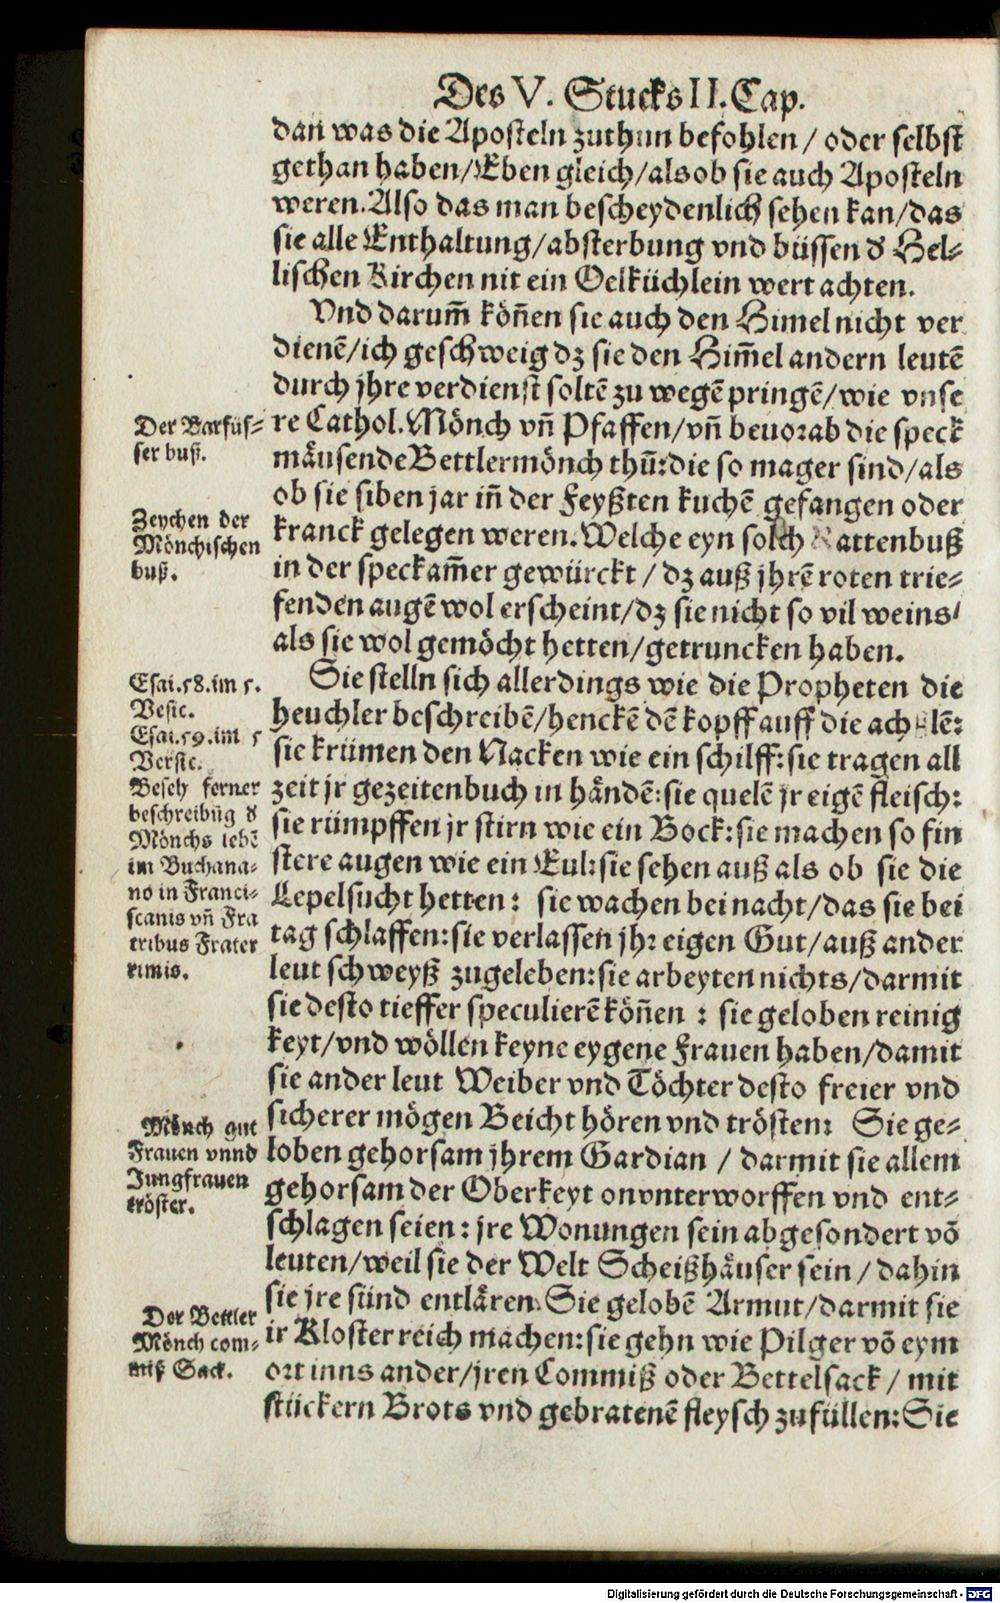 Des V. Stucks II. Cap.
dañ was die Aposteln zuthun befohlen / oder selbst
gethan haben/Eben gleich/als ob sie auch Aposteln
weren. Also das man bescheydenlich sehen kan/das
sie alle Enthaltung/absterbung vnd büssen ď Hel-
lischen Kirchen nit ein Oelküchlein wert achten.
Vnd darum̃ köñen sie auch den Himel nicht ver
dienẽ/ich geschweig dz sie den Him̃el andern leutẽ
durch jhre verdienst soltẽ zu wegẽ pringẽ/wie vnse
re Cathol. Mönch vñ Pfaffen/vñ beuorab die speck
mäusende Bettlermönch thũ:die so mager sind/als
ob sie siben jar iñ der Feyßten kuchẽ gefangen oder
kranck gelegen weren. Welche eyn solch Rattenbuß
in der speckam̃er gewürckt / dz auß jhrẽ roten trie-
fenden augẽ wol erscheint/dz sie nicht so vil weins/
als sie wol gemöcht hetten/getruncken haben.
Sie stelln sich allerdings wie die Propheten die
heuchler beschreibẽ/henckẽ dẽ kopff auff die achslẽ:
sie krümen den Nacken wie ein schilff:sie tragen all
zeit jr gezeitenbuch in händẽ:sie quelẽ jr eigẽ fleisch:
sie rümpffen jr stirn wie ein Bock:sie machen so fin
stere augen wie ein Eul:sie sehen auß als ob sie die
Lepelsucht hetten: sie wachen bei nacht/das sie bei
tag schlaffen:sie verlassen jhr eigen Gut/auß ander
leut schweyß zugeleben:sie arbeyten nichts/darmit
sie desto tieffer speculierẽ köñen : sie geloben reinig
keyt/vnd wöllen keyne eygene Frauen haben/damit
sie ander leut Weiber vnd Töchter desto freier vnd
sicherer mögen Beicht hören vnd trösten: Sie ge-
loben gehorsam jhrem Gardian / darmit sie allem
gehorsam der Oberkeyt onvnterworffen vnd ent-
schlagen seien: jre Wonungen sein abgesondert võ
leuten/weil sie der Welt Scheißhäuser sein / dahin
sie jre sünd entlären. Sie gelobẽ Armut/darmit sie
ir Kloster reich machen:sie gehn wie Pilger võ eym
ort inns ander/jren Commiß oder Bettelsack / mit
stückern Brots vnd gebratenẽ fleysch zufüllen:Sie
Der Barfüs-
ser buß.
Zeychen der
Mönchischen
buß.
Esai.58.im 5.
Vesic.
Esai.59.im 5
Versic.
Beseh ferner
beschreibũg ď
Mönchs lebẽ
im Buchana-
no in Franci-
scanis vñ Fra
tribus Frater
rimis.
Mönch gut
Frauen vnnd
Jungfrauen
tröster.
Der Bettler
Mönch com-
miß Sack.
Digitalisierung gefördert durch die Deutsche Forschungsgemeinschaft - DFG